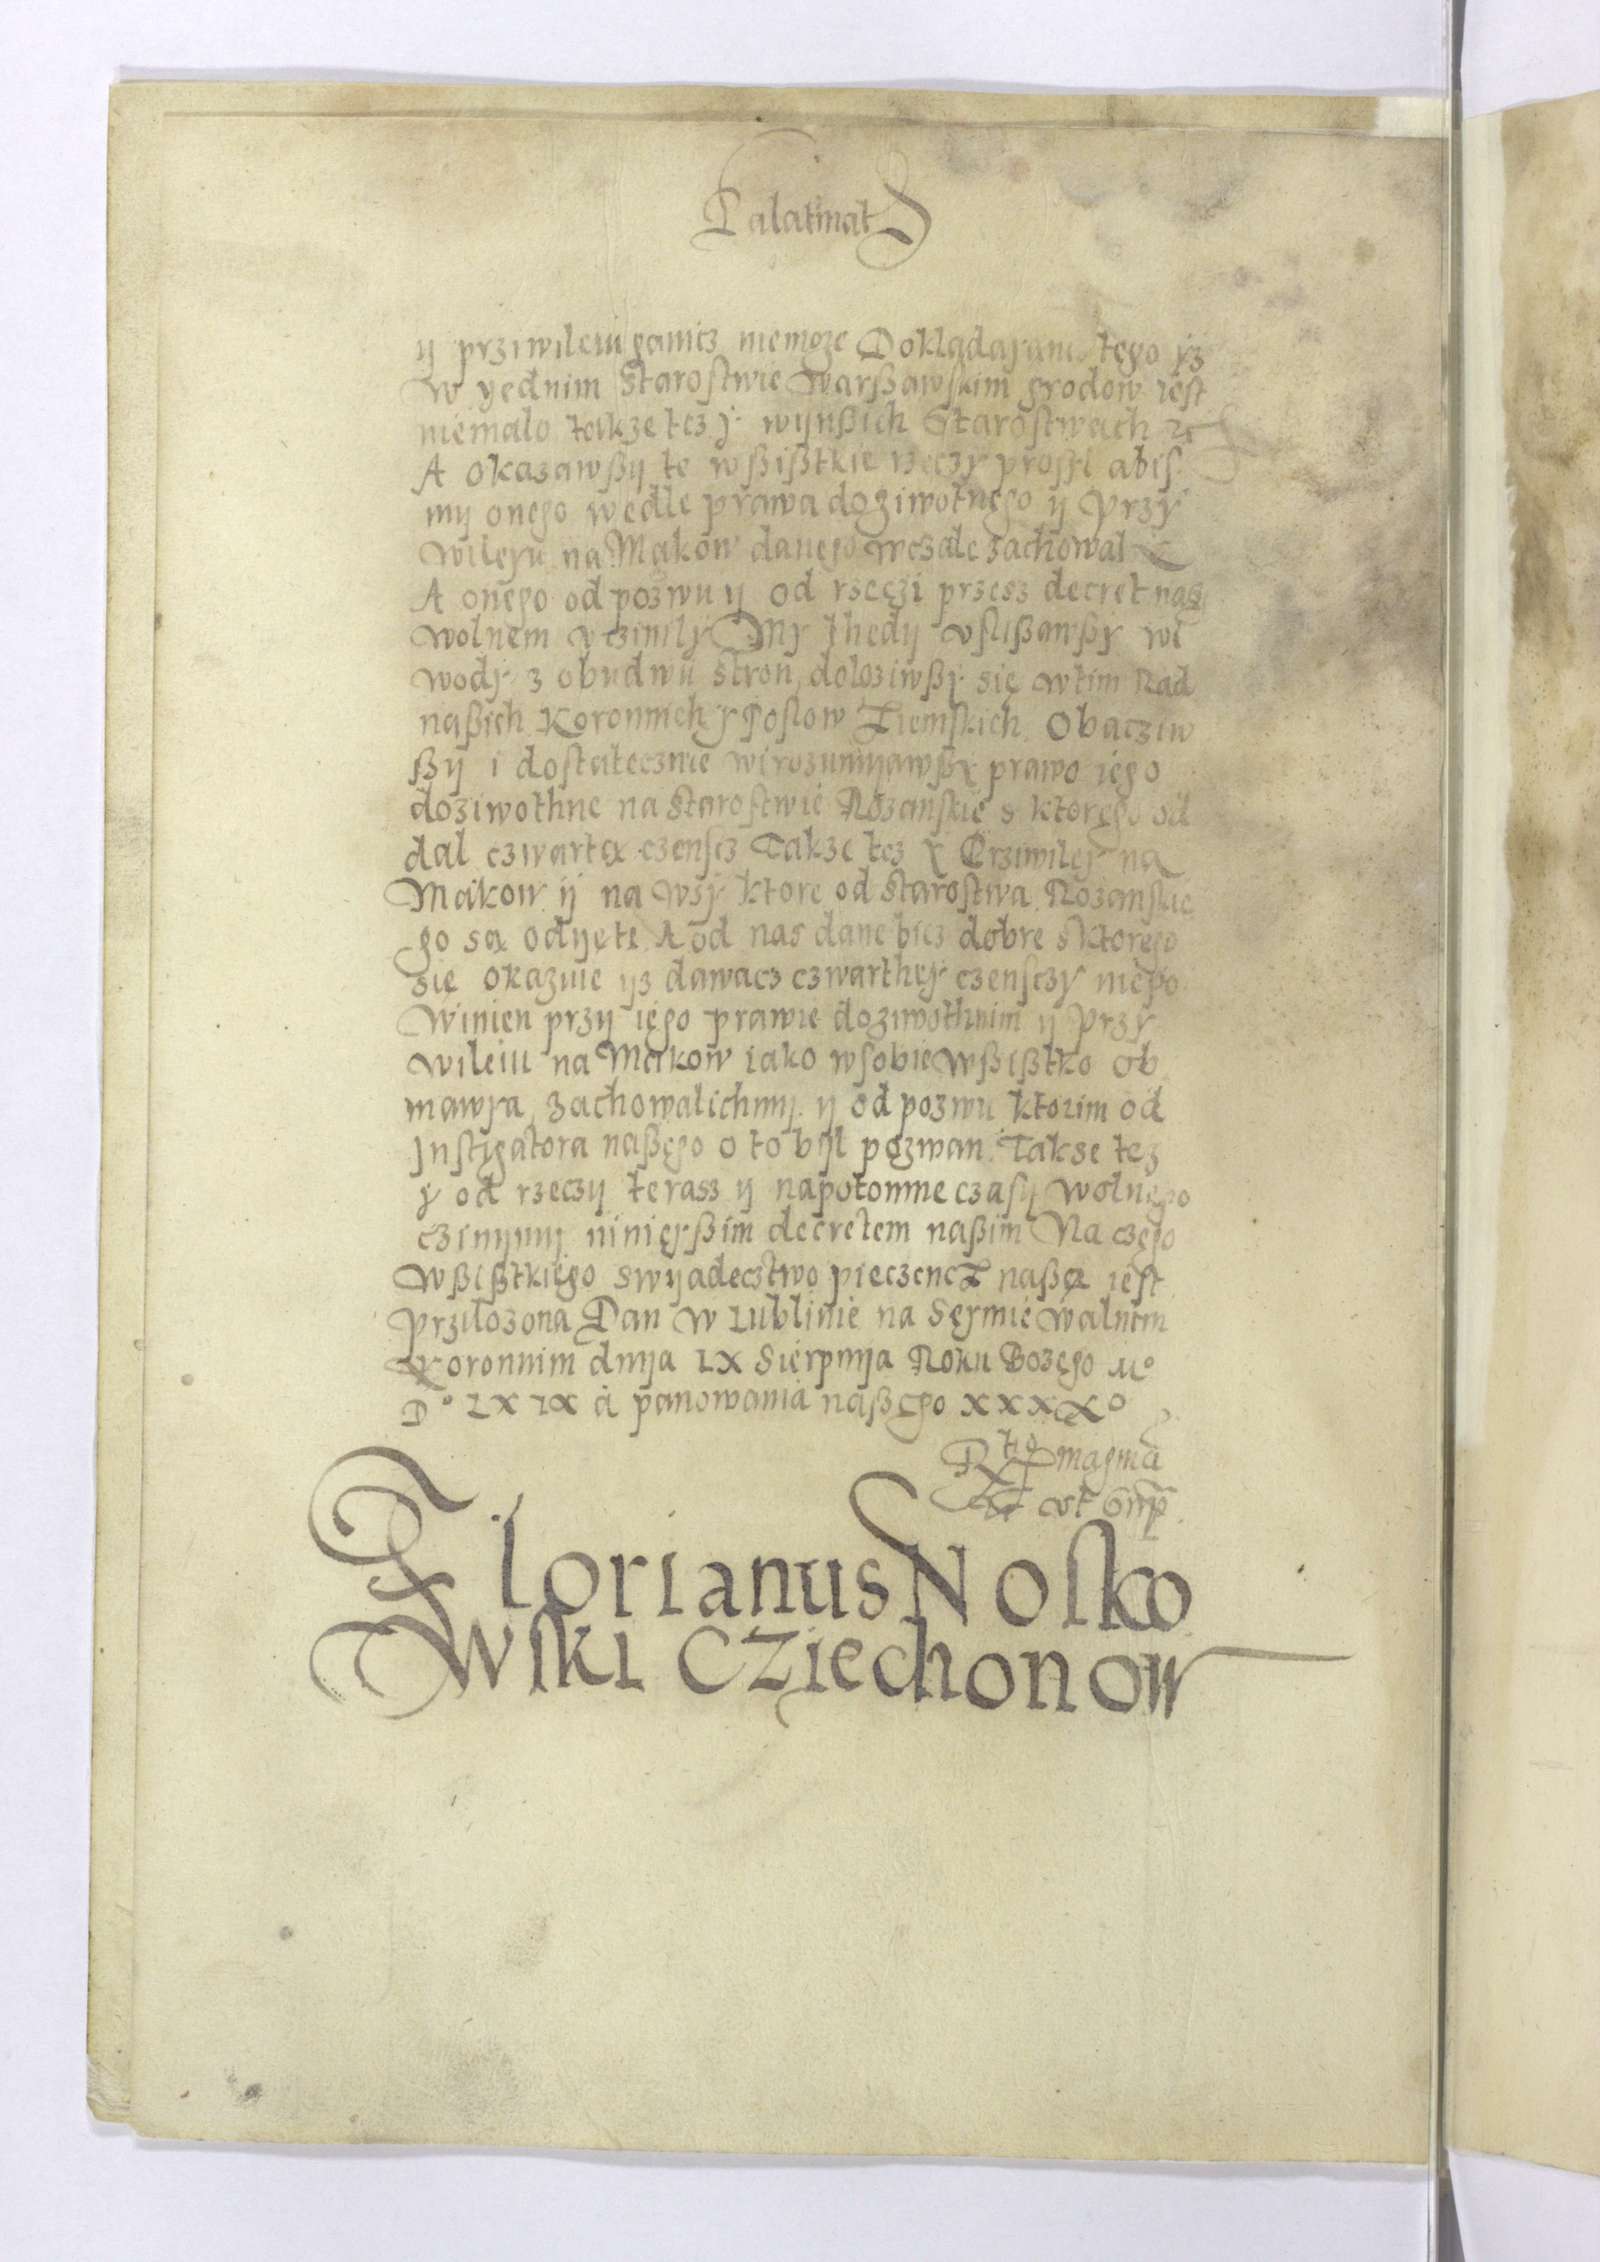 Palatinat
ij przÿwileiu ganicz niemoze Dokladaiąnc tego ÿz
w yednim Starostwie Warßawskim grodow iest
niemalo takze tez ÿ wijnßich Starostwach
A okazawßij te wßißtkie rzeczÿ prosÿl abis
mij onego wedle prawa dozÿwotnęgo ij Przÿ
wilęiu na Makow danego wczale zachowal
A onego od pozwu ij od rzęczi przesz decret naß
wolnem uczinilÿ Mÿ thedij uslißawßÿ wi
wodÿ z obudwu stron, dolozÿwßÿ się wtim Rad
naßich Koronnich ÿ Poslow Ziemskich Obacziw
ßij i dostatecznie wirozumijawßÿ prawo iego
doziwothne na Starostwie Rozanskię s ktoręgo od
dal czwartą czenscz Takze tez ÿ Przÿwileÿ na
Makow ij na wsÿ ktore od Starostwa Rozanskie
go są odijęte A od nas dane bicz dobre s ktorego
się okazuie ijz dawacz czwartheÿ czensczÿ niepo
winien przij ięgo prawie doziwothnim ij Przÿ
wileiu na Makow iako wsobie wßißtko ob
mawÿa, zachowalichmij ij od pozwu ktorim od
Instigatora naßęgo o to bijl pozwan Takse tez
ÿ od rzeczij terasz ij napotomne czasij wolnęgo
czinijmij niniejßim decretem naßim Na czego
wßißtkiego swijadecztwo pieczencz naßa iest
przilozona Dan w Lublinie na Sęÿmie walnim
Koronnim dnija IX Sierpnija Roku Bozęgo Mº
Dº LXIX a panowania naßęgo XXXXº
magma
ut Supr
Florianus Nosko
wski Cziechonow